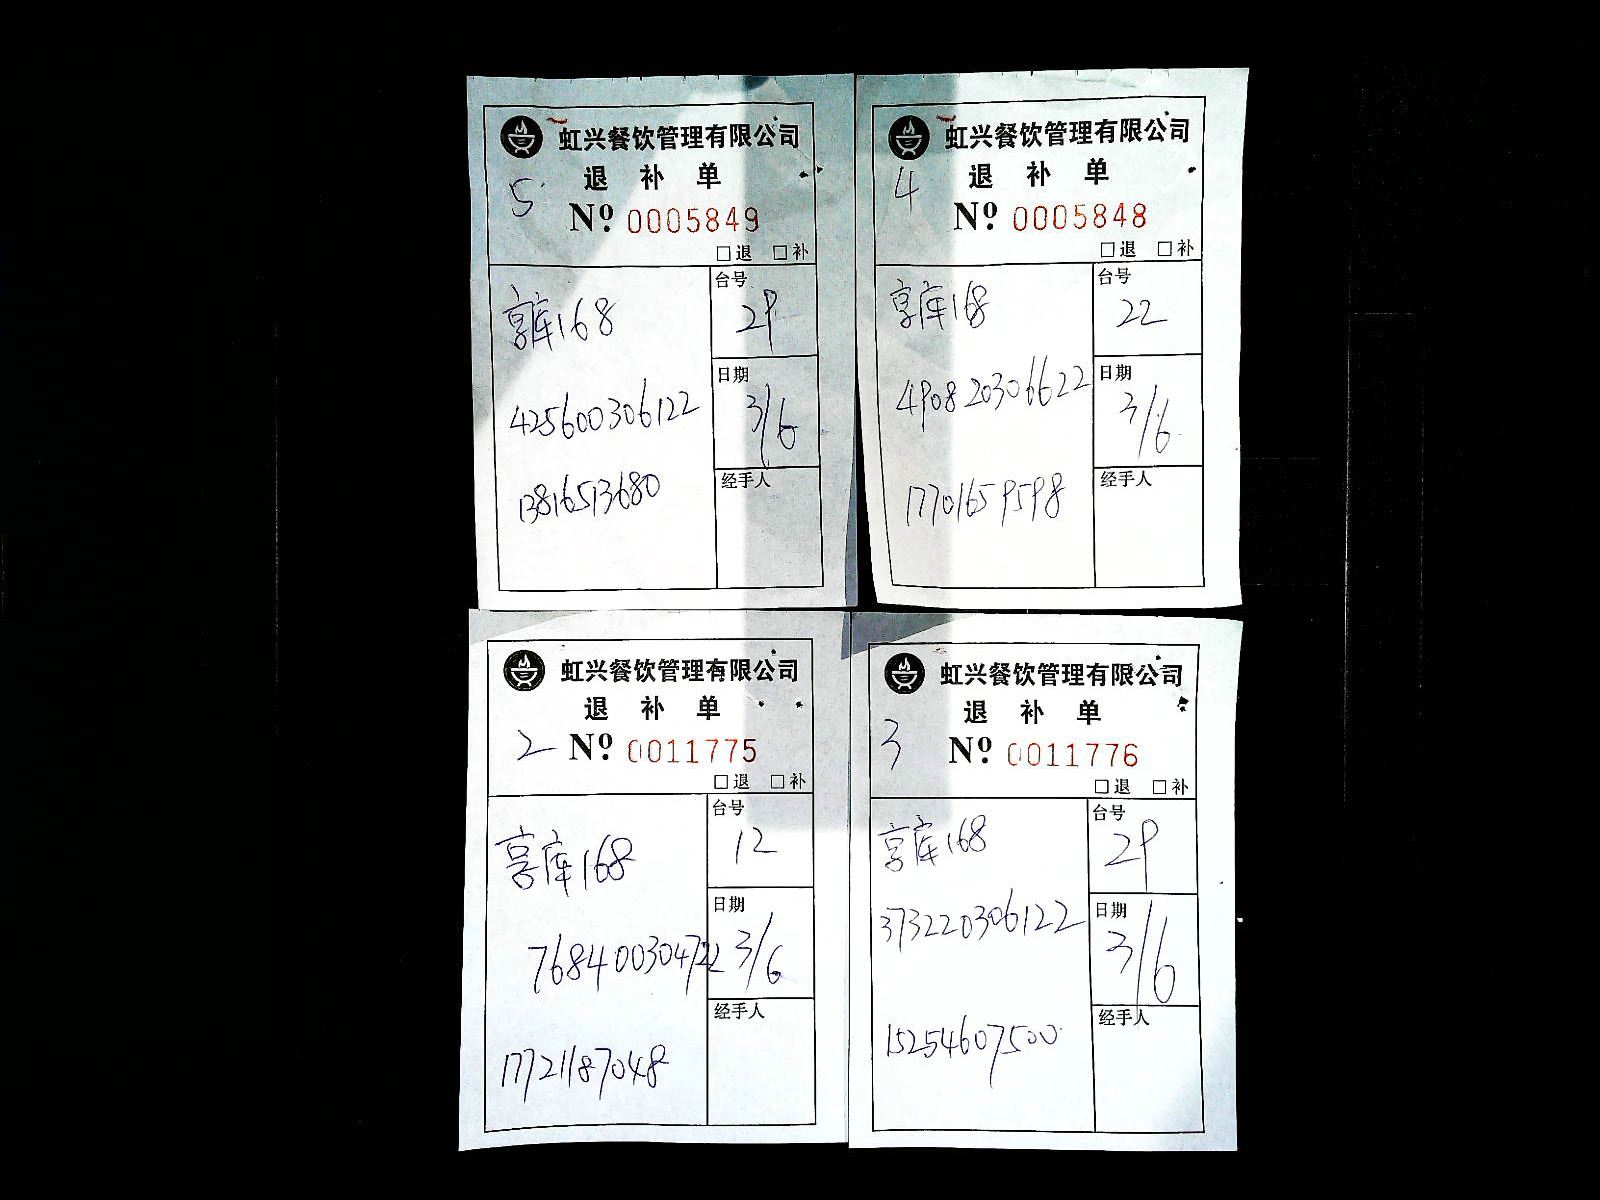 5
虹兴餐饮管理有限公司
退 补 单
Nº 0005849
□退 □补
享库168
425600306122
13816513680
台号
29
日期
3/6
经手人
4
虹兴餐饮管理有限公司
退 补 单
Nº 0005848
□退 □补
享库168
490820306622
17701659598
台号
22
日期
3/6
经手人
2
虹兴餐饮管理有限公司
退 补 单
Nº 0011775
□退 □补
享库168
768400304722
17721187048
台号
12
日期
3/6
经手人
3
虹兴餐饮管理有限公司
退 补 单
Nº 0011776
□退 □补
享库168
373220306122
15254607500
台号
29
日期
3/6
经手人